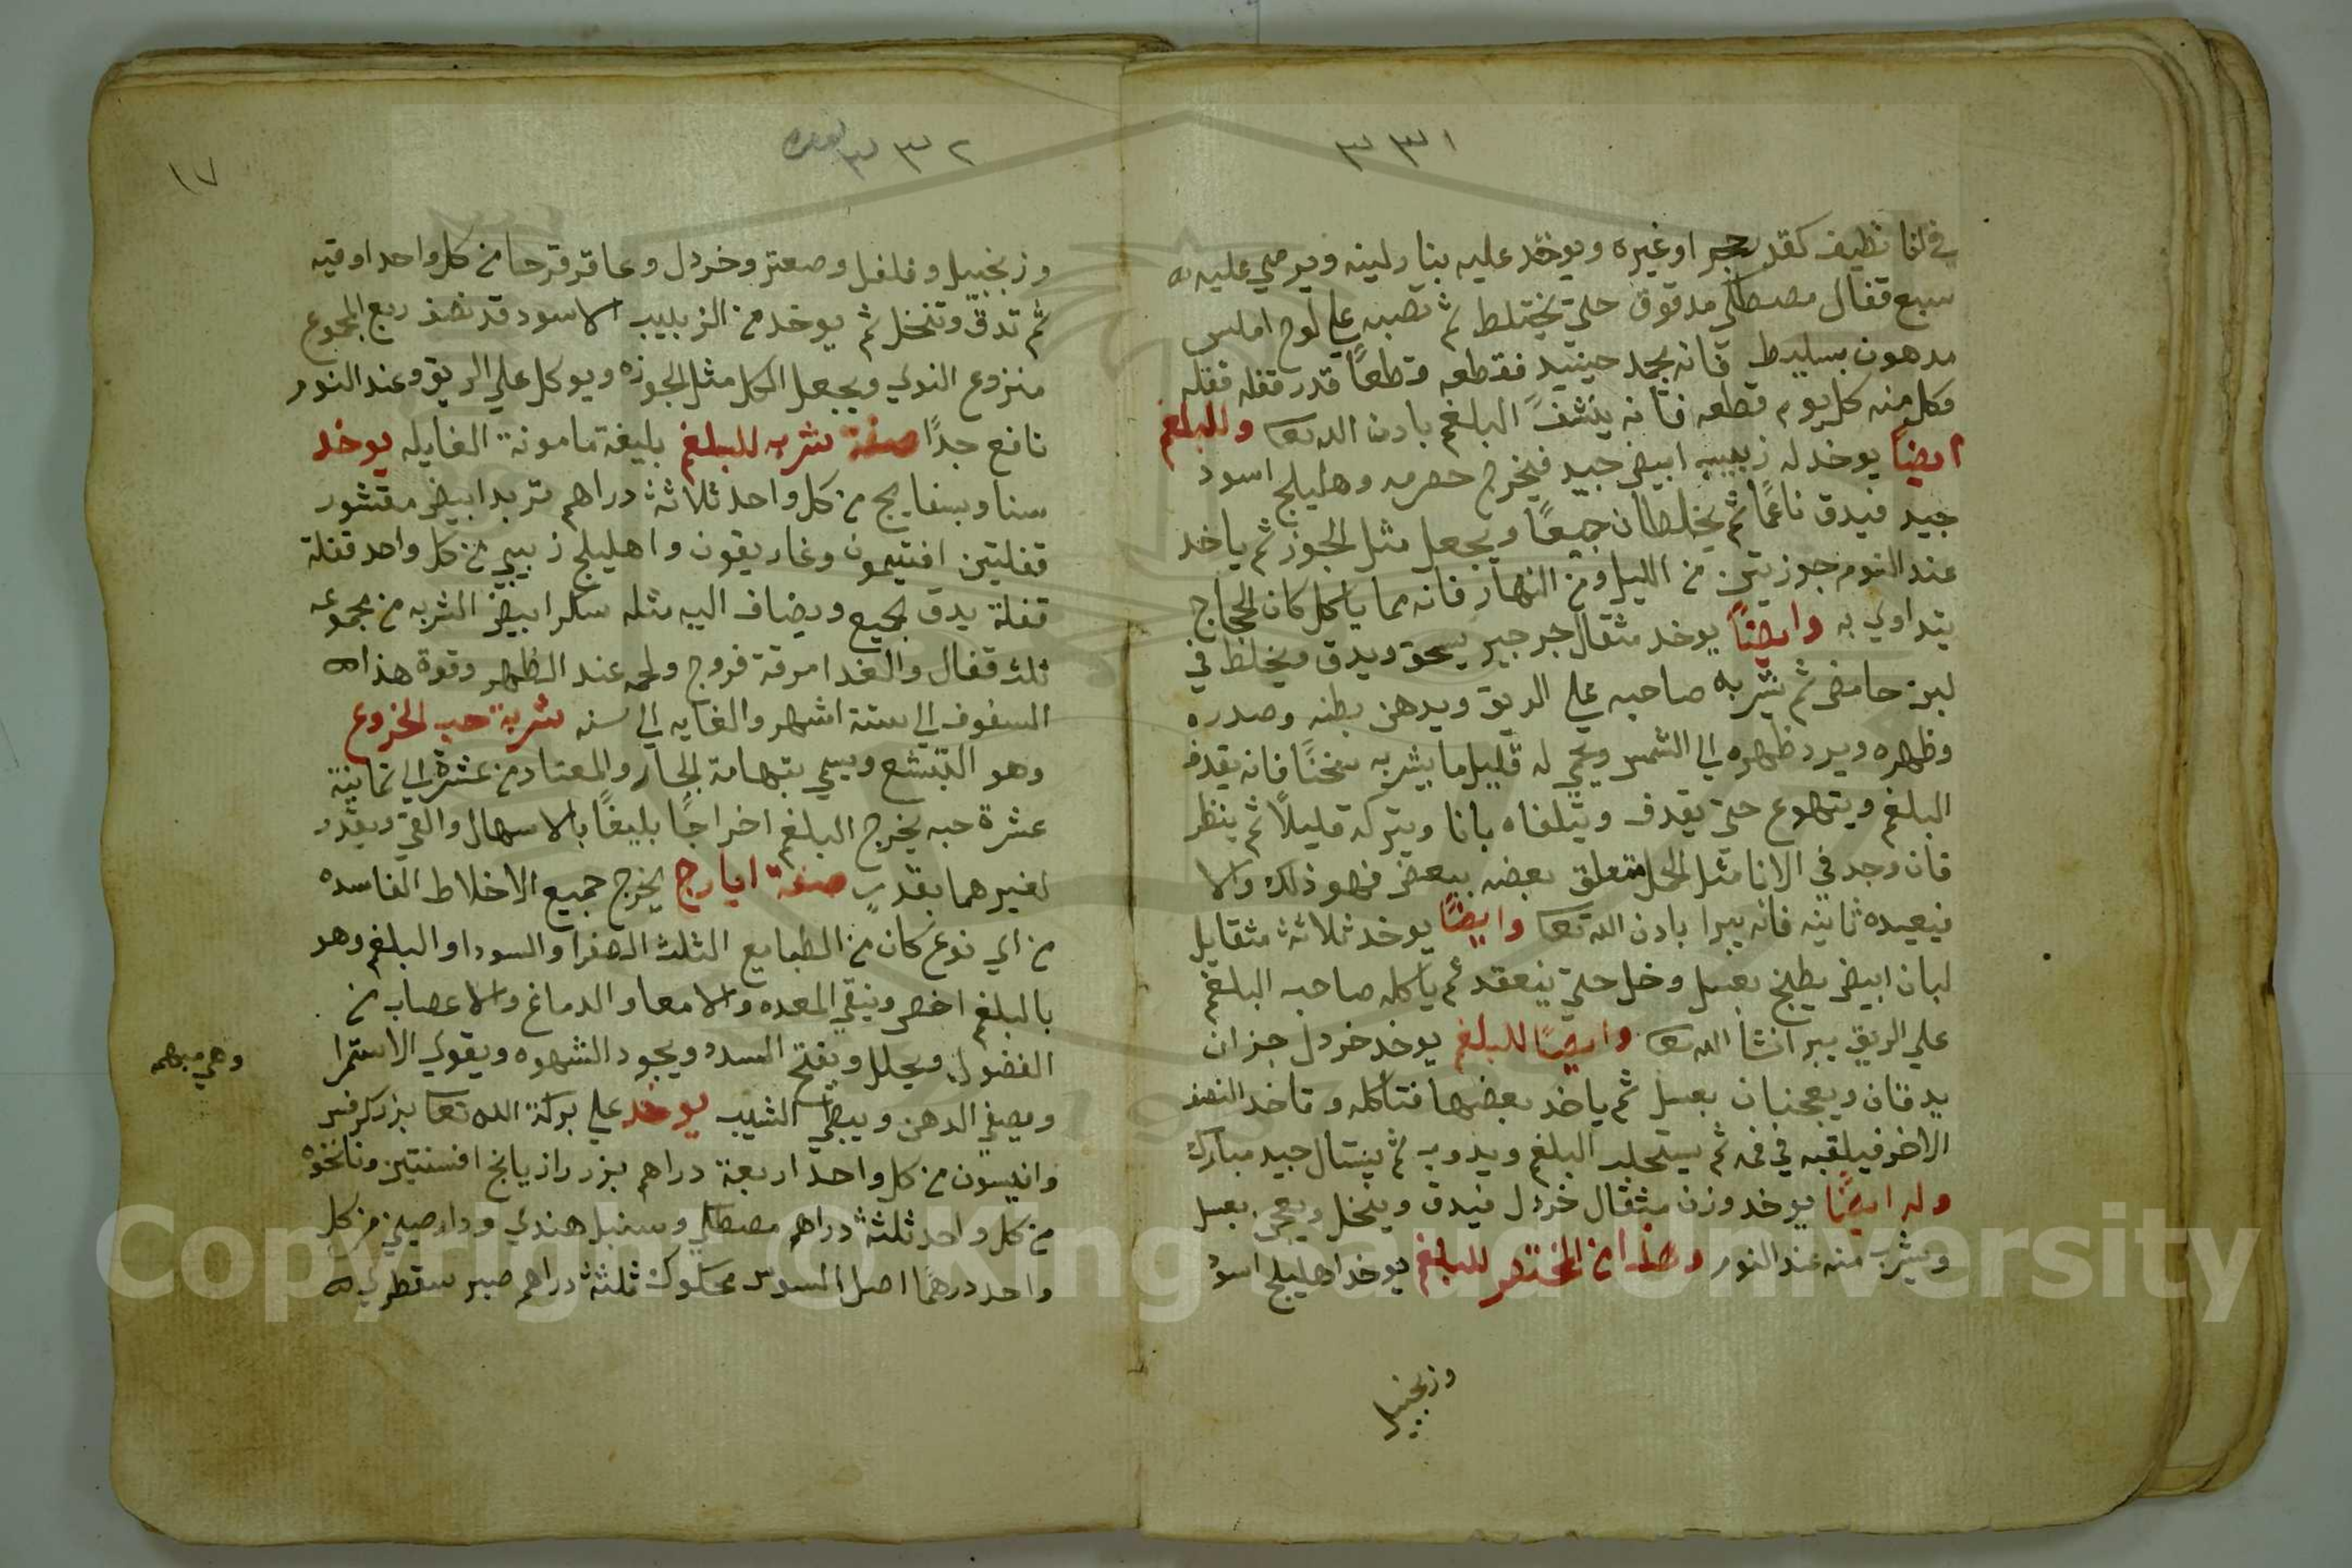 ٣٣١
في انا نظيف كقدر حجر او غيره ويوخد عليه بنار لينه ويرمي عليه
سبع قفال مصطكي مدقوق حتي يختلط ثم تصبه علي لوح املس
مدهون بسليط فانه يجمد حينيد فقطعه قطعًا قدر قفله قفله
وكل منه كل يوم قطعه فانه ينشف البلغم بادن الله تعا وللبلغم
ايضًا يوخد له زبيب ابيض جيد فيخرج حصرمه وهليلج اسود
جيد فيدق ناعمًا ثم يخلطان جميعًا ويجعل مثل الجوز ثم ياخد
عند النوم جوزيتين من الليل ومن النهار فانه مما ياكل كان الحجاج
يتداوي به وايضًا يوخد مثقال جرجير يسحق ويدق ويخلط في
لبن حامض ثم يشربه صاحبه علي الريق ويدهن بطنه وصدره
وظهره ويرد ظهره الي الشمس ويحمي له قليل ما يشربه سخنًا فانه يقدف
البلغم ويتهوع حتي يقدف ويتلقاه بانا ويتركه قليلًا ثم ينظر
فان وجد في الانا مثل المحل متعلق بعضه ببعض فهو ذلك والا
فيعيده ثانيه فانه يبرا بادن الله تعا وايضًا يوخد ثلاثة مثقايل
لبان ابيض يطبخ بعسل وخل حتي ينعقد ثم ياكله صاحب البلغم
علي الريق يبر انشا الله تعا وايضًا للبلغم يوخد خردل جزان
يدقان ويعجنان بعسل ثم ياخد بعضها فتاكله وتاخد النصف
الاخر فيلقيه في فمه ثم يستحلب البلغم ويدوب ثم ينسال جيد مبارك
وله ايضًا يوخد وزن مثقال خردل فيدق وينخل ويعجن بعسل
ويشرب منه عند النوم وهذا من المختصر للبلغم يوخد اهليلج اسود
وزنجبيل
٣٣٢
١٧
وزنجبيل وفلفل وصعتر وخردل وعاقرقرحا من كل واحد اوقيه
ثم تدق وتنخل ثم يوخد من الزبيب الاسود قد نصف ربع المجموع
منزوع النوي ويجعل الكل مثل الجوزه ويوكل علي الريق وعند النوم
نافع جدًا صفة شربه للبلغم بليغة مامونة الغايله يوخد
سنا وبسفايج من كل واحد ثلاثة دراهم تربد ابيض مقشور
قفلتين افتيمون وغاريقون واهليلج زبيبي من كل واحد قفلة
قفلة يدق الجميع ويضاف اليه مثله سكر ابيض الشربه من مجموعه
ثلث قفال والغدا مرقة فروج ولحمه عند الظهر وقوة هذا
السفوف الي ستة اشهر والغايه الي سنه شربة حب الخروع
وهو التبشع ويسمي بتهامة الجار والمعتاد من عشرة الي ثمانية
عشرة حبه يخرج البلغم اخراجًا بليغًا بالاسهال والقي ويقدر
لغيرهما بقدر صفة ايارج يخرج جميع الاخلاط الفاسده
من اي نوع كان من الطبايع الثلث الصفرا والسودا والبلغم وهو
بالبلغم اخص وينقي المعده والامعا والدماغ والاعصاب من
الفضول ويحلل ويفتح السدد ويجود الشهوه ويقوي الاستمرا
ويصفي الدهن ويبطي الشيب يوخد علي بركة الله تعا بزر كرفس
وانيسون من كل واحد اربعة دراهم بزر رازيانج افسنتين ونانخوه
من كل واحد ثلثة دراهم مصطكي وسنبل هندي ودارصيني من كل
واحد درهما اصل السوس محكوك ثلثة دراهم صبر سقطري